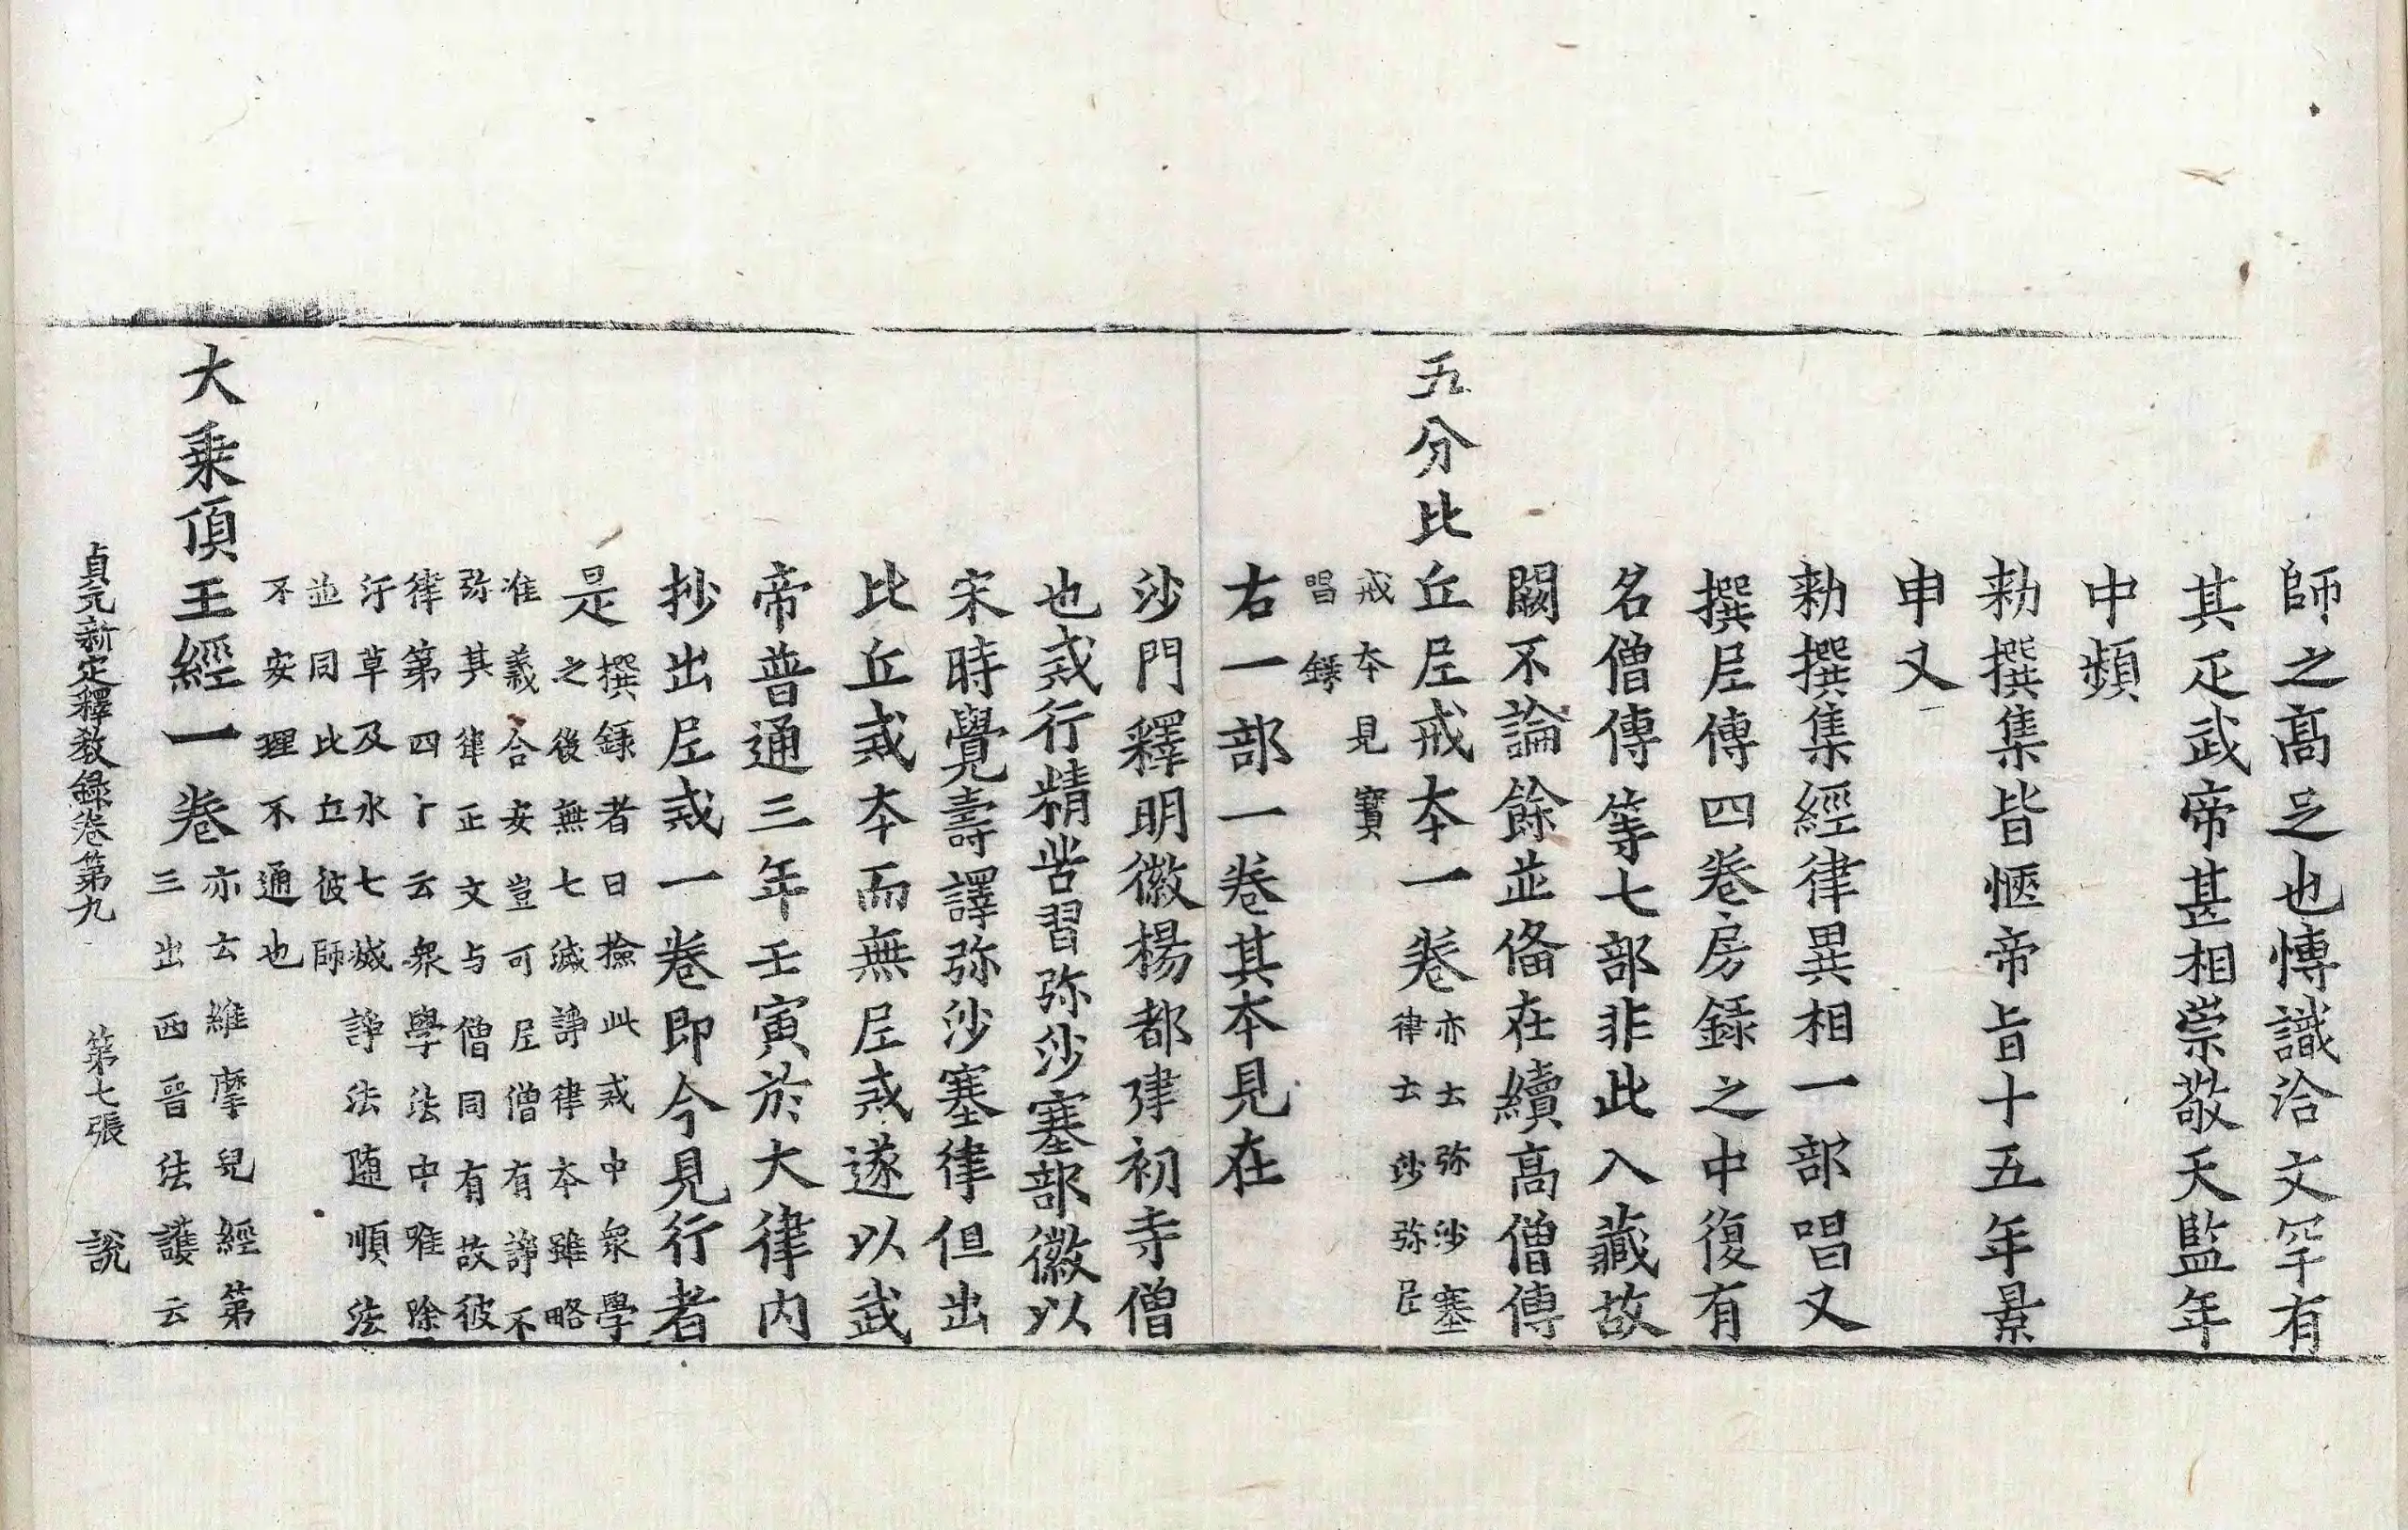 師之高足也愽識洽文罕有
其疋武帝甚相崇敬天監年
中頻
勑撰集皆愜帝旨十五年景
申又
勑撰集經律異相一部唱又
撰尼傳四卷房録之中復有
名僧傳等七部非此入藏故
闕不論餘並俻在續高僧傳
五分比丘尼戒本一卷亦云弥沙塞
律云沙弥尼
戒本見寶
唱録
右一部一卷其本見在
沙門釋明徽楊都建初寺僧
也戒行精苦習弥沙塞部徽以
宋時覺壽譯弥沙塞律但出
比丘戒本而無尼戒遂以武
帝普通三年壬寅於大律内
抄出尼戒一卷即今見行者
是撰録者曰撿此戒中衆學
之後無七滅諍律本雖略
准義合安豈可尼僧有諍不
弥其律正文与僧同有故彼
律第四十云衆學法中唯除
汙草及水七滅諍法随順法
並同比丘彼師
不安理不通也
大乗頂王經一卷亦云維摩兒經第
三出西晉法護云
貞元新定釋教録卷第九 第七張 說